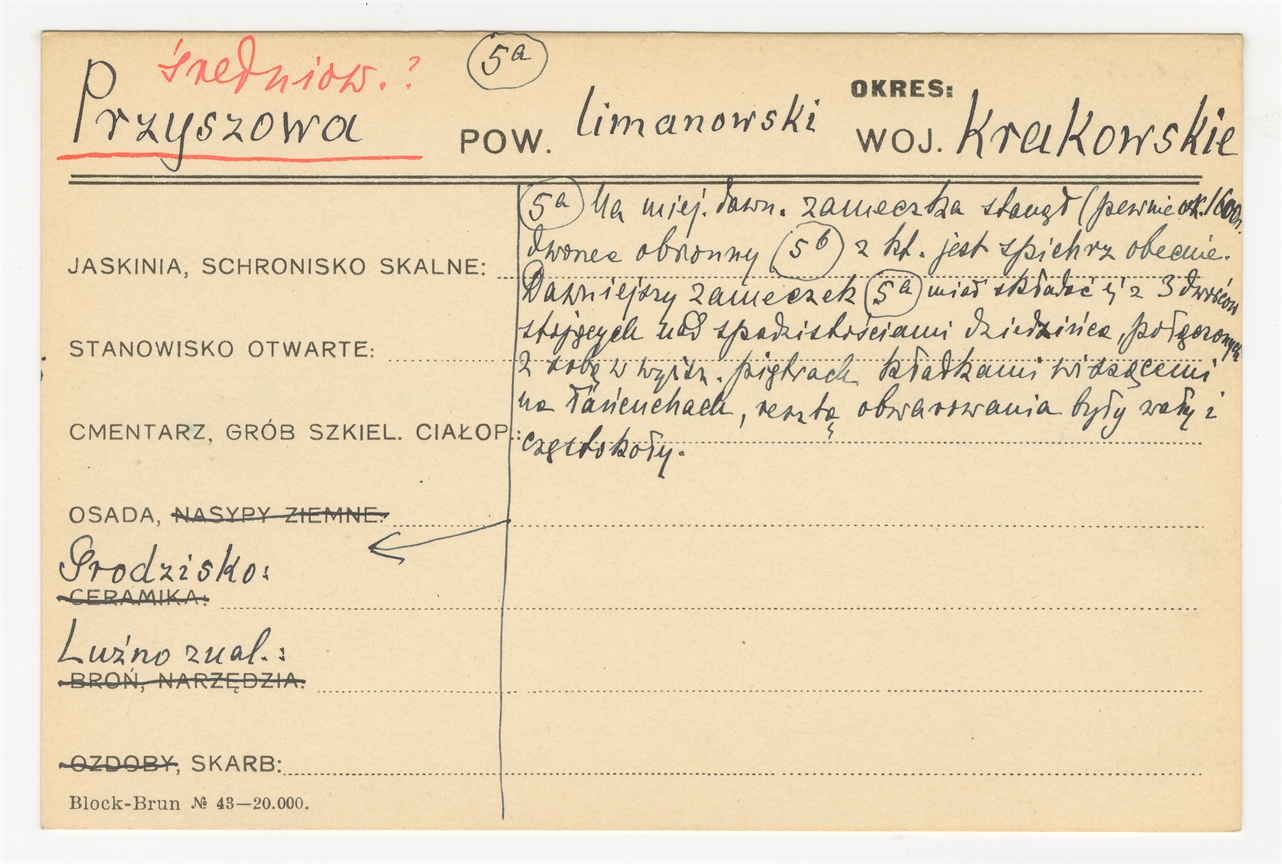 średniow.?
5a
Przyszowa POW. limanowski OKRES: WOJ. Krakowskie
5a Na miej. dawn. zameczka stanął (pewnie ok. 1600r.
dworzec obronny 5b z kt. jest spichrz obecnie.
Dawniejszy zameczek 5a miał składać się z 3 dworców
stojących nad spadzistościami dziedzińca, połączonych
z sobą w wyższ. piętrach kładkami wiszącemi
na łańcuchach, resztą obwarowania były wały i
częstokoły.
JASKINIA, SCHRONISKO SKALNE:
STANOWISKO OTWARTE:
CMENTARZ, GRÓB SZKIEL. CIAŁOP.:
OSADA, NASYPY ZIEMNE:
Grodzisko:
CERAMIKA:
Luźno znal.:
BROŃ, NARZĘDZIA:
OZDOBY, SKARB:
Block-Brun № 43—20.000.